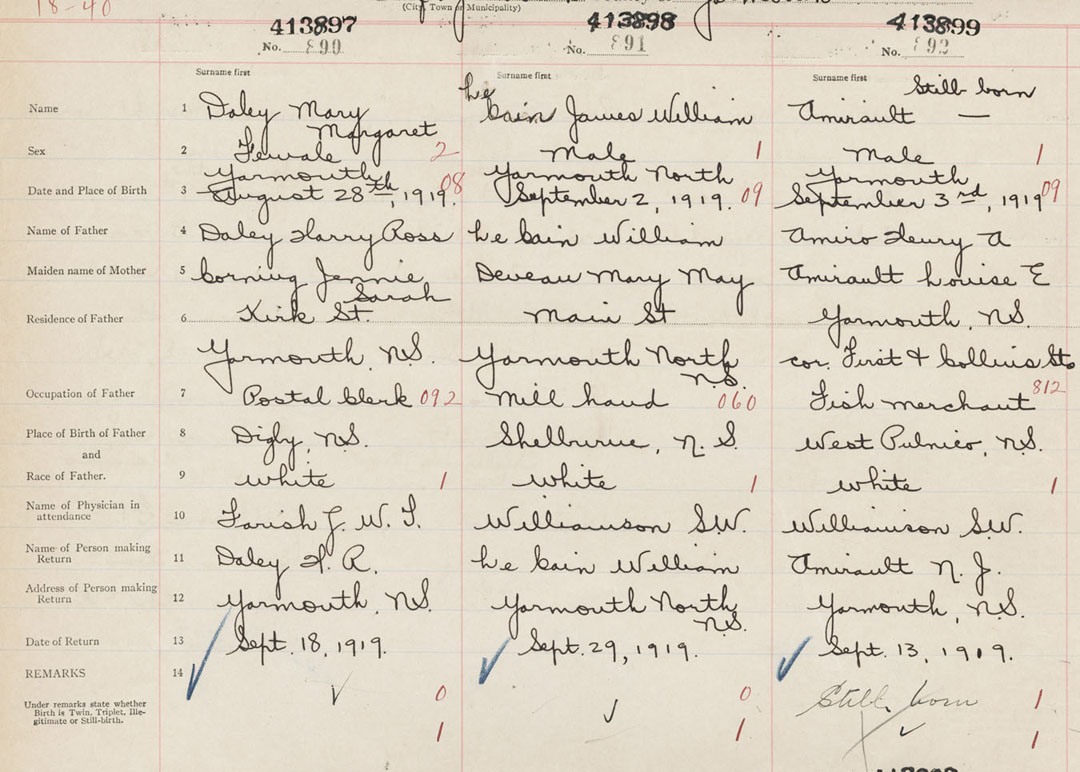 18-40
(City, Town or Municipality)
413897 413898 413899
No. 890 No. 891 No. 892
Surname first Surname first Surname first
Still born
Name 1 Daley Mary Margaret Le Cain James William Amirault —
Sex 2 Female 2 Male 1 Male 1
Yarmouth Yarmouth North Yarmouth
Date and Place of Birth 3 August 28th, 1919. 08 September 2, 1919. 09 September 3rd, 1919 09
Name of Father 4 Daley Harry Ross Le Cain William Amiro Henry A
Maiden name of Mother 5 Corning Jennie Sarah Deveau Mary May Amirault Louise E
Residence of Father 6 Kirk St. Main St Yarmouth, N.S.
Yarmouth, N.S. Yarmouth North N.S. cor. First & Collins Sts
Occupation of Father 7 Postal Clerk 092 Mill hand 060 Fish merchant 812
Place of Birth of Father 8 Digby, N.S. Shelburne, N.S. West Pubnico, N.S.
and
Race of Father. 9 White 1 White 1 White 1
Name of Physician in
attendance 10 Farish J. W. T. Williamson S.W. Williamson S.W.
Name of Person making
Return 11 Daley H. R. Le Cain William Amirault N. J.
Address of Person making
Return 12 Yarmouth, N.S. Yarmouth North N.S. Yarmouth, N.S.
Date of Return 13 Sept. 18, 1919. Sept. 29, 1919. Sept. 13, 1919.
REMARKS 14 0 0 Still born 1
Under remarks state whether
Birth is Twin, Triplet, Ille-
gitimate or Still-birth.
1 1 1